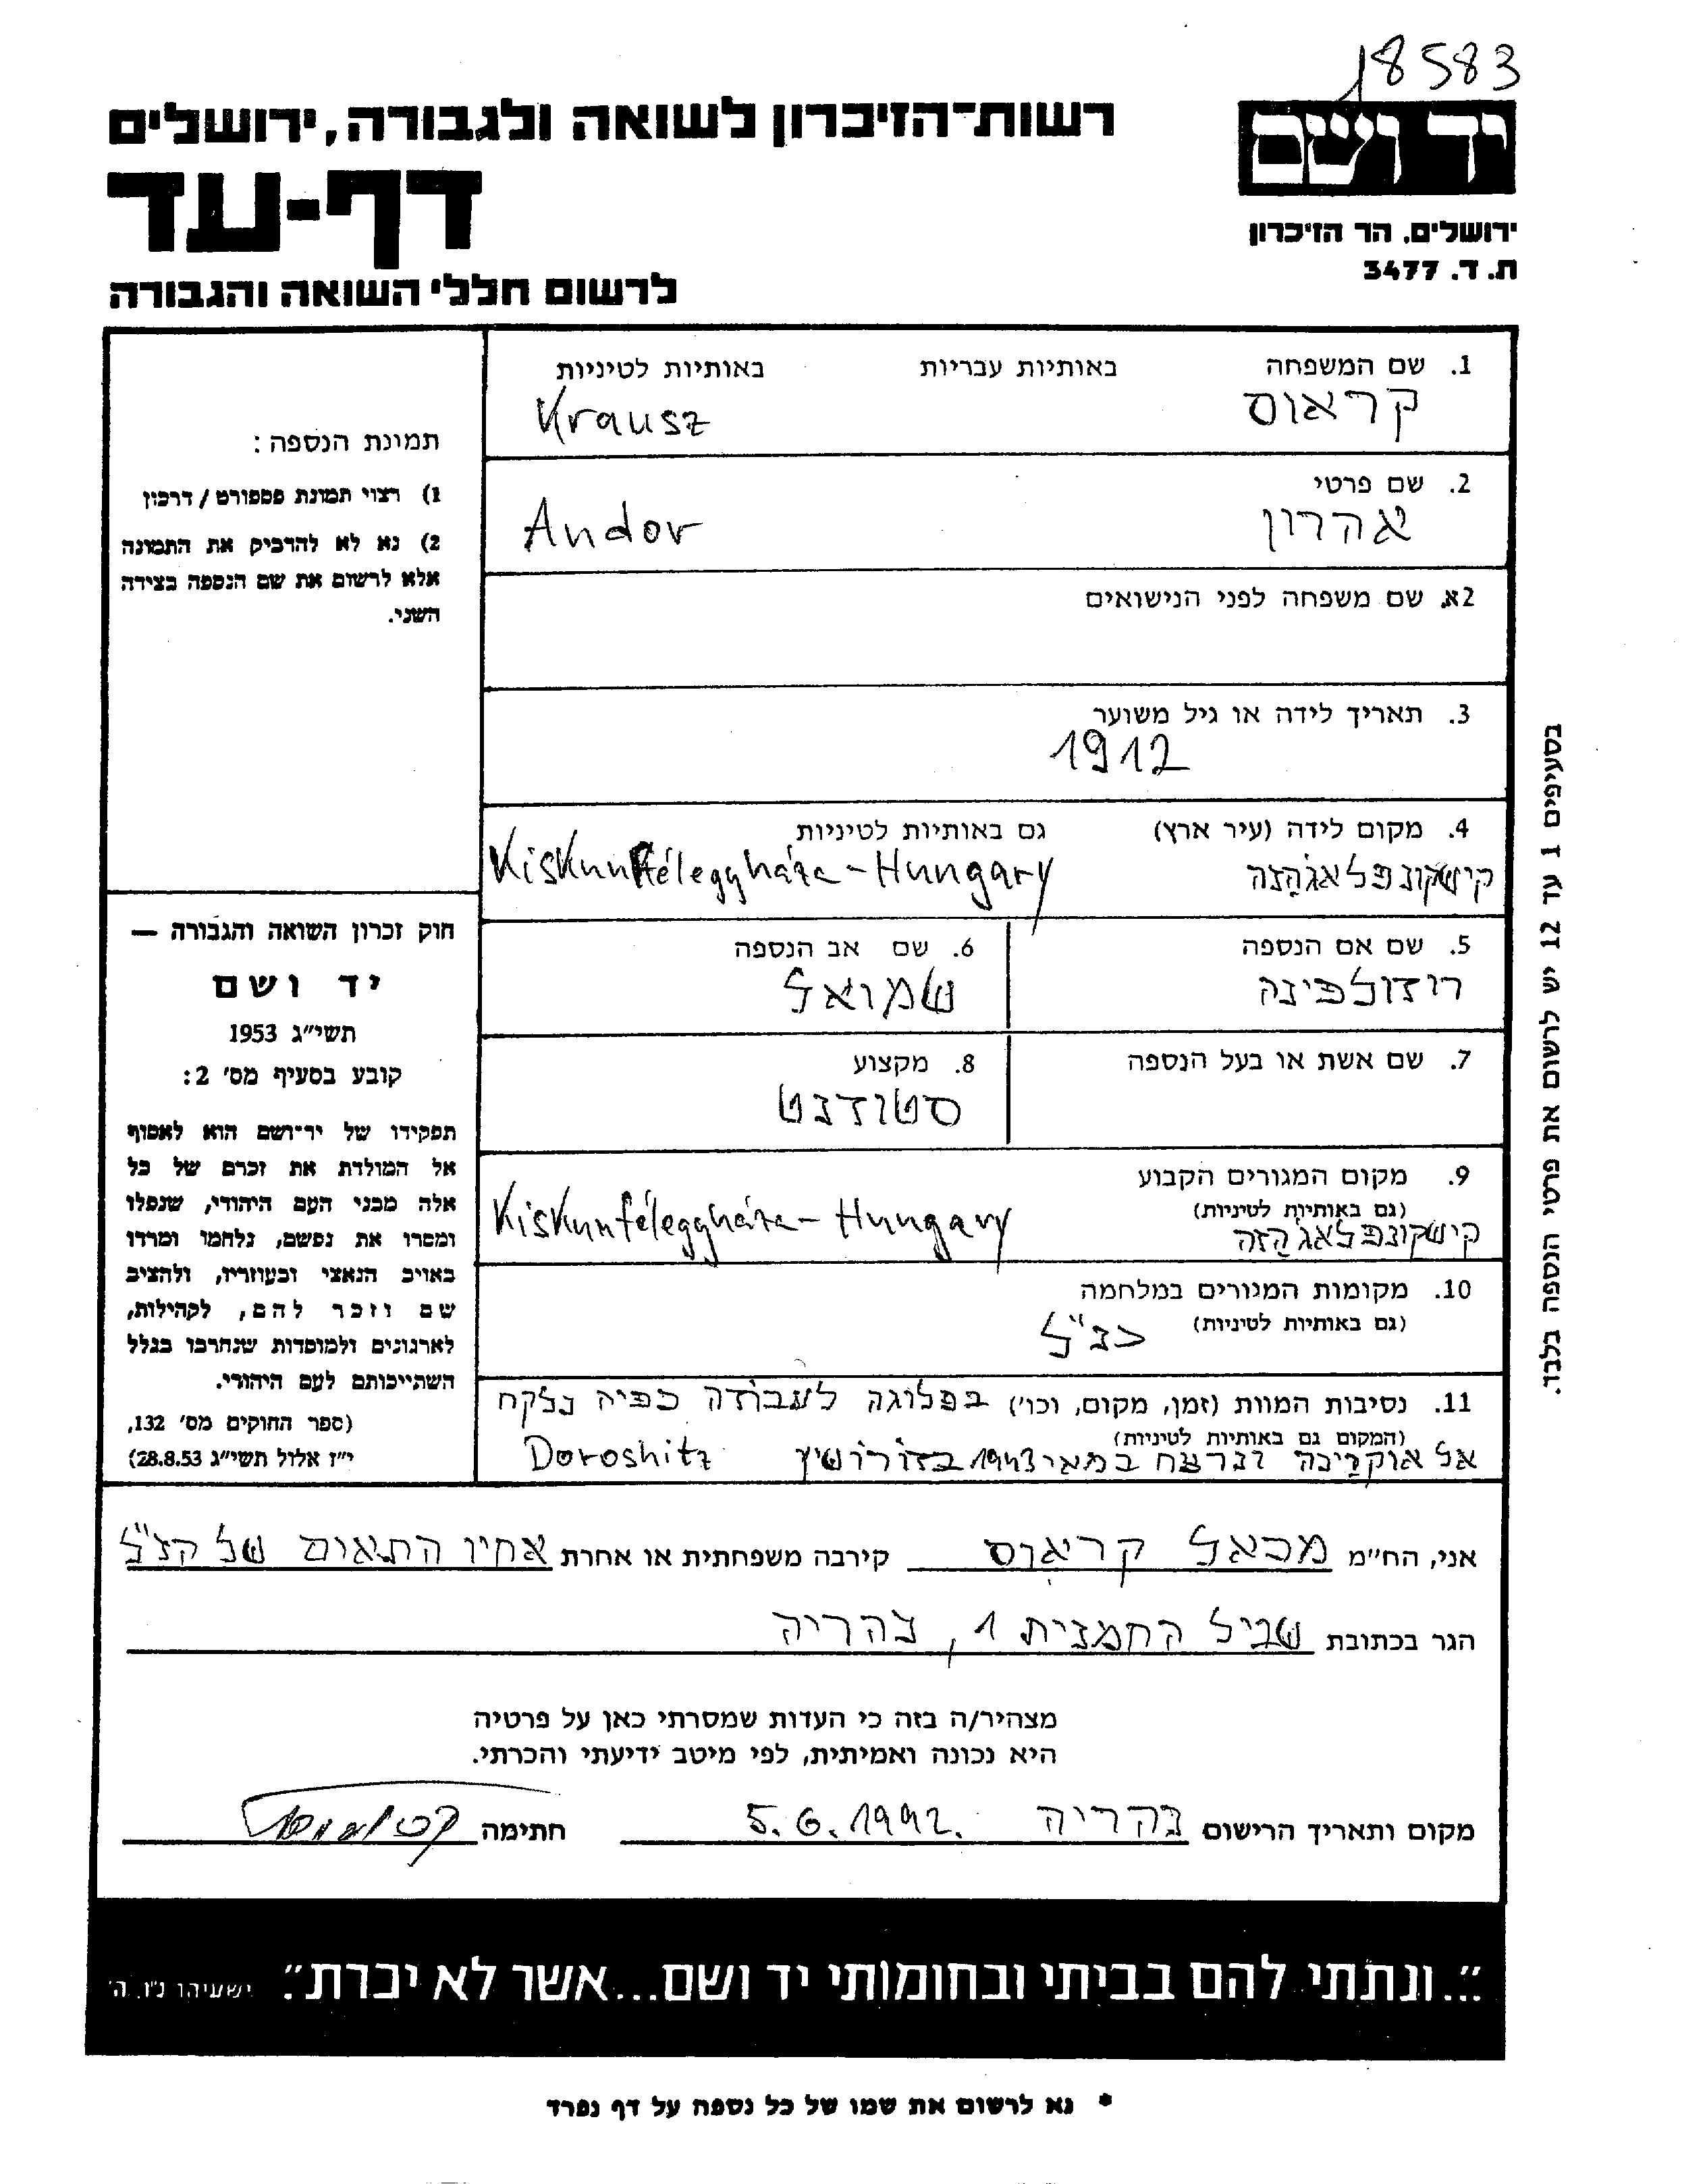 18583
רשות-הזיכרון לשואה ולגבורה, ירושלים
יד ושם
דף-עד
ירושלים, הר הזיכרון
ת. ד. 3477
לרשום חללי השואה והגבורה
1. שם המשפחה באותיות עבריות באותיות לטיניות
קראוס Krausz
2. שם פרטי
אהרון Andor
2א. שם משפחה לפני הנישואים
3. תאריך לידה או גיל משוער
1912
4. מקום לידה (עיר ארץ) גם באותיות לטיניות
קישקונפלאג'הזה Kiskunfélegyháza - Hungary
5. שם אם הנספה
רוזולפינה
6. שם אב הנספה
שמואל
7. שם אשת או בעל הנספה
8. מקצוע
סטודנט
9. מקום המגורים הקבוע
(גם באותיות לטיניות)
קישקונפלאג'הזה Kiskunfélegyháza - Hungary
10. מקומות המגורים במלחמה
(גם באותיות לטיניות) כנ"ל
11. נסיבות המוות (זמן, מקום, וכו') בפלוגה לעבודה כפיה נלקח
(המקום גם באותיות לטיניות)
אל אוקרינה ונרצח במאי 1943 בדורושיץ Doroshitz
תמונת הנספה:
1) רצוי תמונת פספורט / דרכון
2) נא לא להדביק את התמונה
אלא לרשום את שם הנספה בצידה
השני.
חוק זכרון השואה והגבורה —
יד ושם
תשי״ג 1953
קובע בסעיף מס' 2:
תפקידו של יד-ושם הוא לאסוף
אל המולדת את זכרם של כל
אלה מבני העם היהודי, שנפלו
ומסרו את נפשם, נלחמו ומרדו
באויב הנאצי ובעוזריו, ולהציב
שם וזכר להם, לקהילות,
לארגונים ולמוסדות שנחרבו בגלל
השתייכותם לעם היהודי.
(ספר החוקים מס' 132,
י״ז אלול תשי״ג 28.8.53)
בסעיפים 1 עד 12 יש לרשום את פרטי הנספה בלבד.
אני, הח״מ מכאל קראוס קירבה משפחתית או אחרת אחיו התאום של הנ"ל
הגר בכתובת שביל החמנית 1, נהריה
מצהיר/ה בזה כי העדות שמסרתי כאן על פרטיה
היא נכונה ואמיתית, לפי מיטב ידיעתי והכרתי.
מקום ותאריך הרישום נהריה 5.6.1992. חתימה
"...ונתתי להם בביתי ובחומותי יד ושם...אשר לא יכרת". ישעיהו נ"ו, ה'
* נא לרשום את שמו של כל נספה על דף נפרד